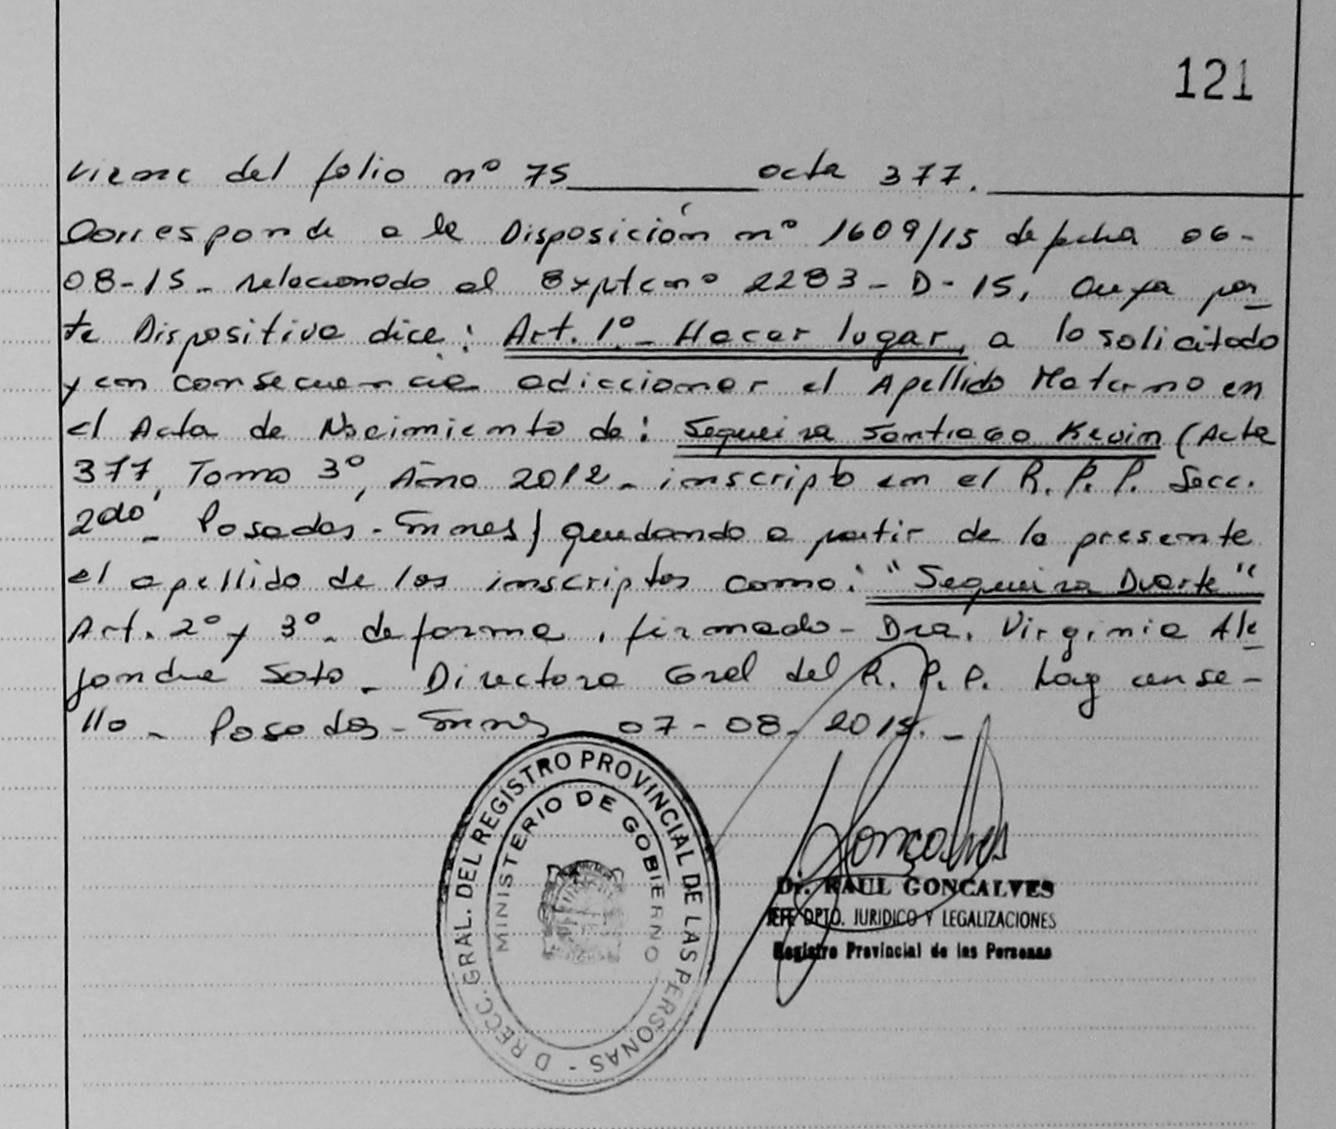 121
Viene del folio nº 75 acta 377.
Corresponde a la Disposición nº 1609/15 de fecha 06-
08-15_ relacionado al Expte nº 2283-D-15, Cuya par
te Dispositiva dice: Art. 1º_ Hacer lugar, a lo solicitado
y en consecuencia adiccionar el Apellido Materno en
el Acta de Nacimiento de: Sequeira Santiago Kevin (Acta
377, Tomo 3º, Año 2012_ inscripto en el R.P.P. Secc.
2da_ Posadas-Mnes) quedando a partir de la presente
el apellido de los inscriptos como: "Sequeira Duarte"
Art. 2º y 3º_ de forma, firmado- Dra. Virginia Ale
jandra Soto_ Directora Gral del R.P.P. hay un se-
llo_ Posadas-Mnes 07-08-2015._
DIRECC. GRAL. DEL REGISTRO PROVINCIAL DE LAS PERSONAS -
MINISTERIO DE GOBIERNO
Goncalves
Dr. RAUL GONCALVES
JEFE DPTO. JURIDICO Y LEGALIZACIONES
Registro Provincial de las Personas